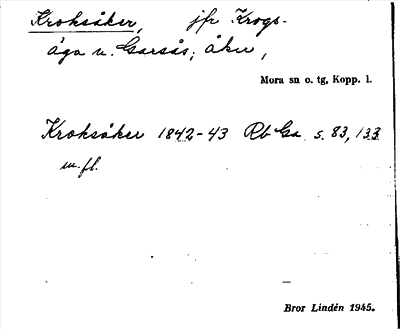 Kroksåker, jfr Krogs-
åga u. Garsås; åker,
Mora sn o. tg, Kopp. l.
Kroksåker 1842-43 Rb Ga s. 83, 133
m. fl.
Bror Lindén 1945.